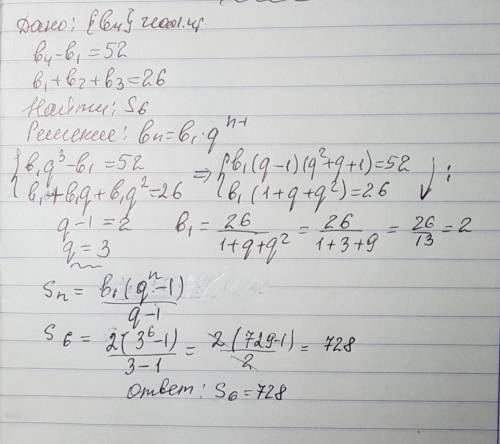 Дано: {bn} геом.
b4 - b1 = 52
b1 + b2 + b3 = 26
Найти: S6
Решение: bn = b1 · q^(n-1)
{b1q³ - b1 = 52 => {b1(q-1)(q²+q+1) = 52
{b1 + b1q + b1q² = 26 {b1(1+q+q²) = 26 ↓ :
q - 1 = 2 b1 = 26/(1+q+q²) = 26/(1+3+9) = 26/13 = 2
q = 3
Sn = b1(q^n - 1)/(q-1)
S6 = 2(3⁶-1)/(3-1) = 2(729-1)/2 = 728
Ответ: S6 = 728